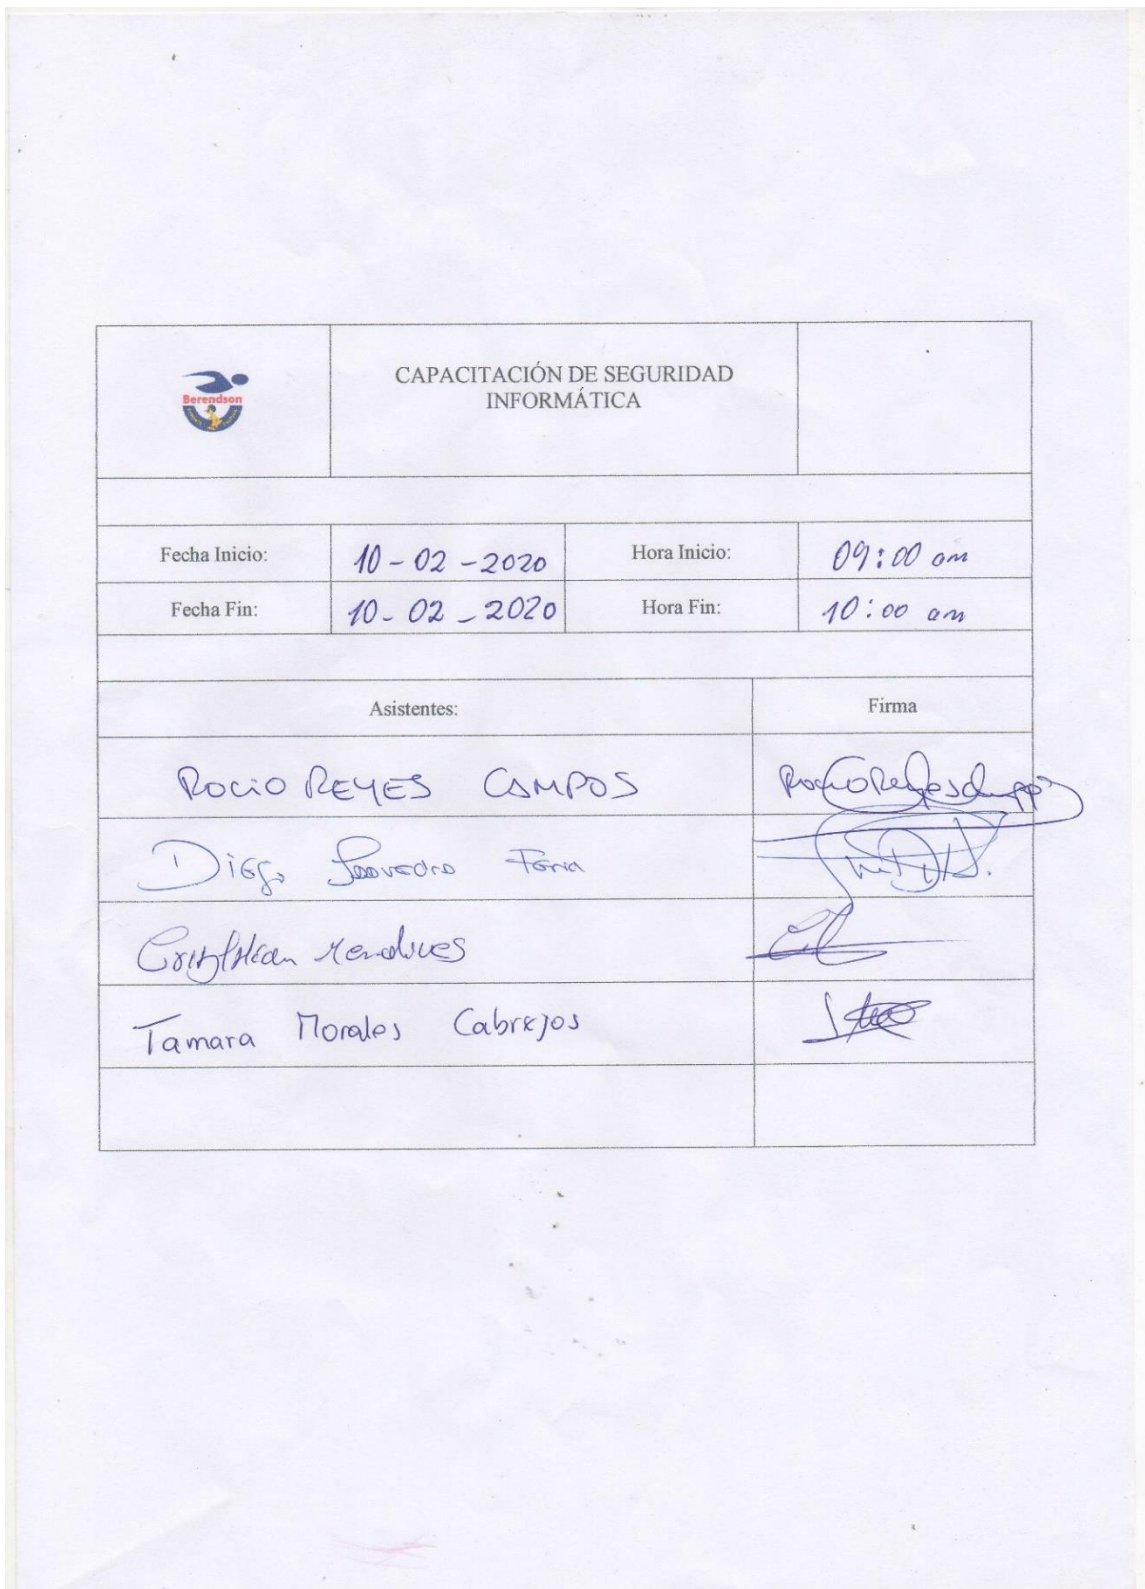 Berendson
CAPACITACIÓN DE SEGURIDAD
INFORMÁTICA
Fecha Inicio:
10-02-2020
Hora Inicio:
09:00 am
Fecha Fin:
10-02-2020
Hora Fin:
10:00 am
Asistentes:
Firma
ROCIO REYES CAMPOS
Diego Saavedra
Mendives
Tamara Morales Cabrejos